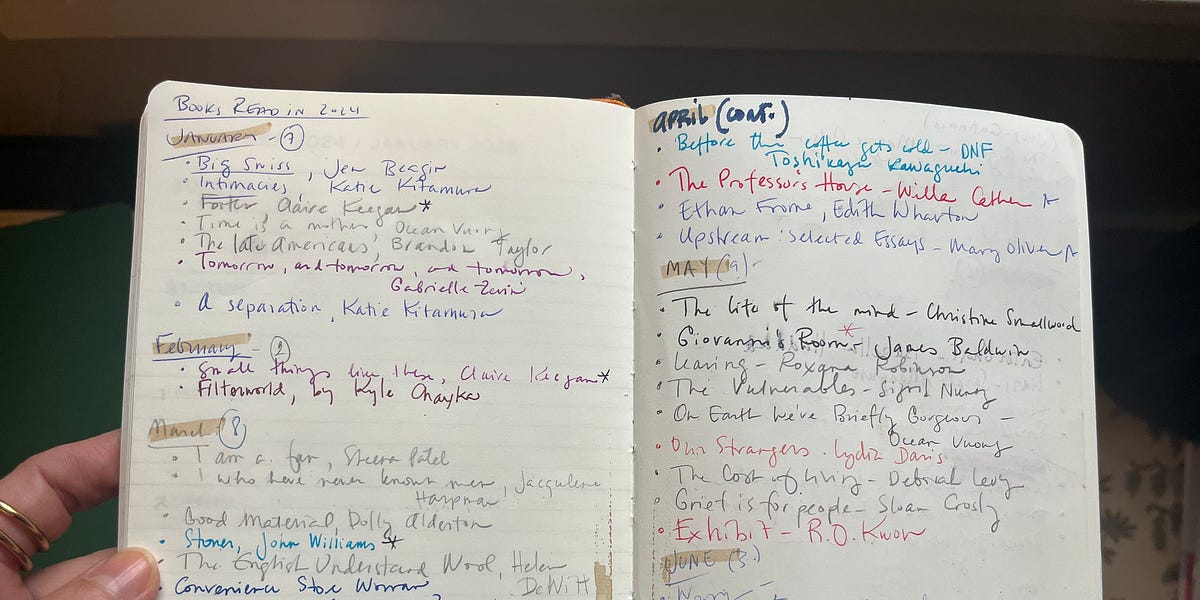 BOOKS READ IN 2024
JANUARY - 7
• Big Swiss, Jen Beagin
• Intimacies, Katie Kitamura
• Foster Claire Keegan *
• Time is a mother Ocean Vuong
• The late Americans, Brandon Taylor
• Tomorrow, and tomorrow, and tomorrow,
Gabrielle Zevin
• A separation, Katie Kitamura
February - 2
• Small things like these, Claire Keegan *
• Filterworld, by Kyle Chayka
March 8
• I am a fan, Sheena Patel
• I who have never known men, Jacqueline
Harpman
• Good Material, Dolly Alderton
• Stoner, John Williams *
• The English Understand Wool, Helen
DeWitt
• Convenience Store Woman
APRIL (CONT.)
• Before the coffee gets cold - DNF
Toshikazu Kawaguchi
• The Professor's House - Willa Cather
• Ethan Frome, Edith Wharton
• Upstream: Selected Essays - Mary Oliver
MAY (9) -
• The life of the mind - Christine Smallwood
• Giovanni's Room * - James Baldwin
• Leaving - Roxana Robinson
• The Vulnerables - Sigrid Nunez
• On Earth We're Briefly Gorgeous -
Ocean Vuong
• Our Strangers. Lydia Davis
• The Cost of Living - Deborah Levy
• Grief is for people - Sloan Crosly
• Exhibit - R.O. Kwon
JUNE (3.)